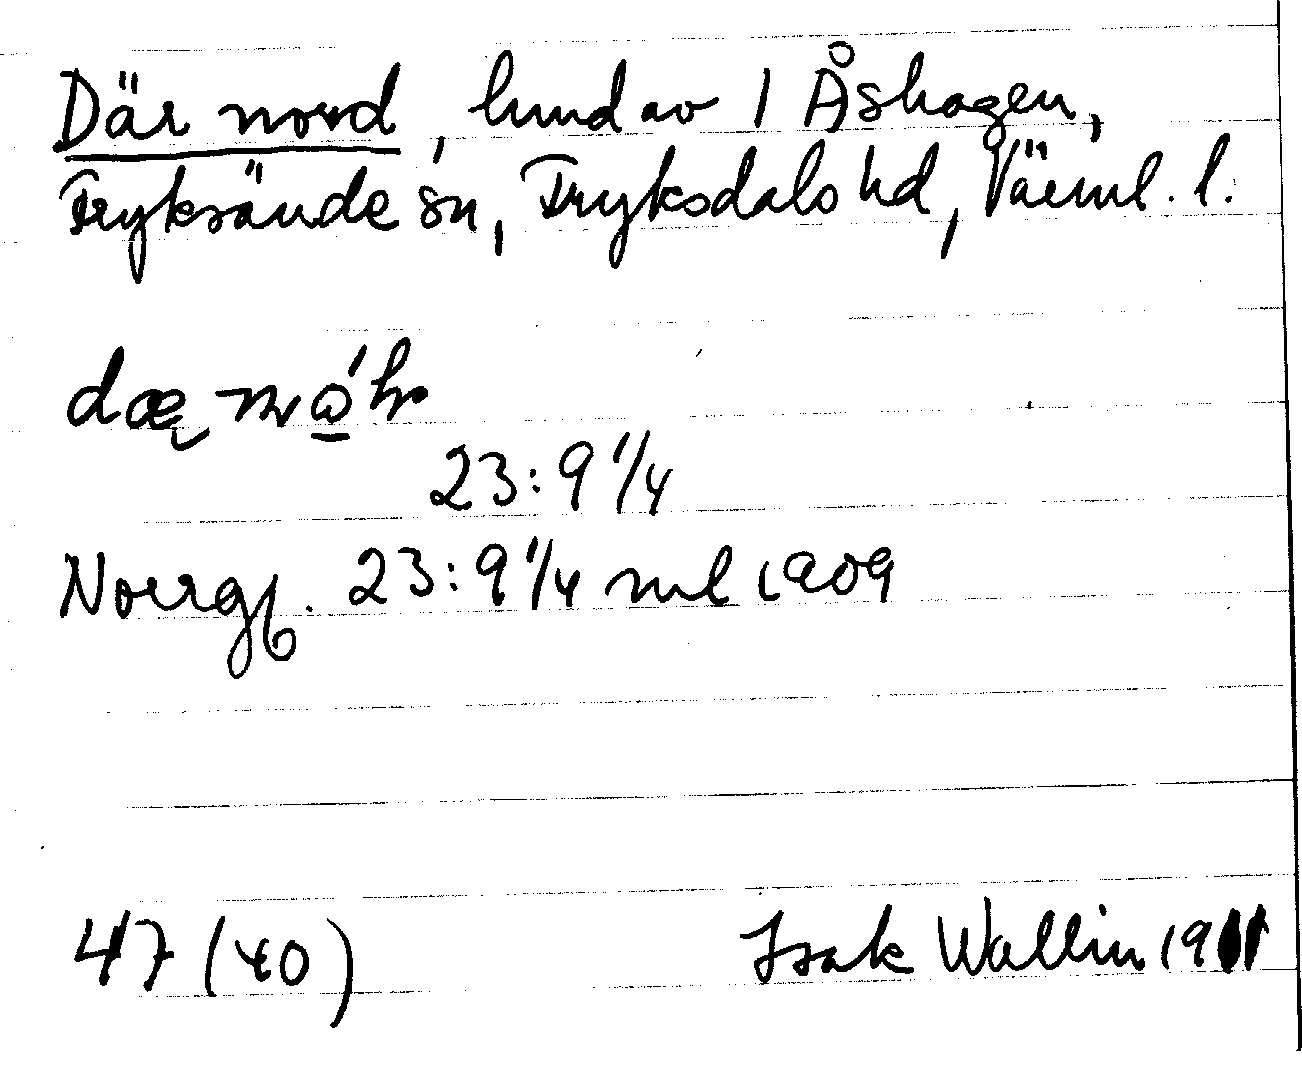 Där nord, hmd av 1 Åshagen,
Fryksände sn, Fryksdals hd, Värml. l.
23:9 1/4
Norrgf. 23:9 1/4 ml 1909
47 (40) Isak Wallin 1911